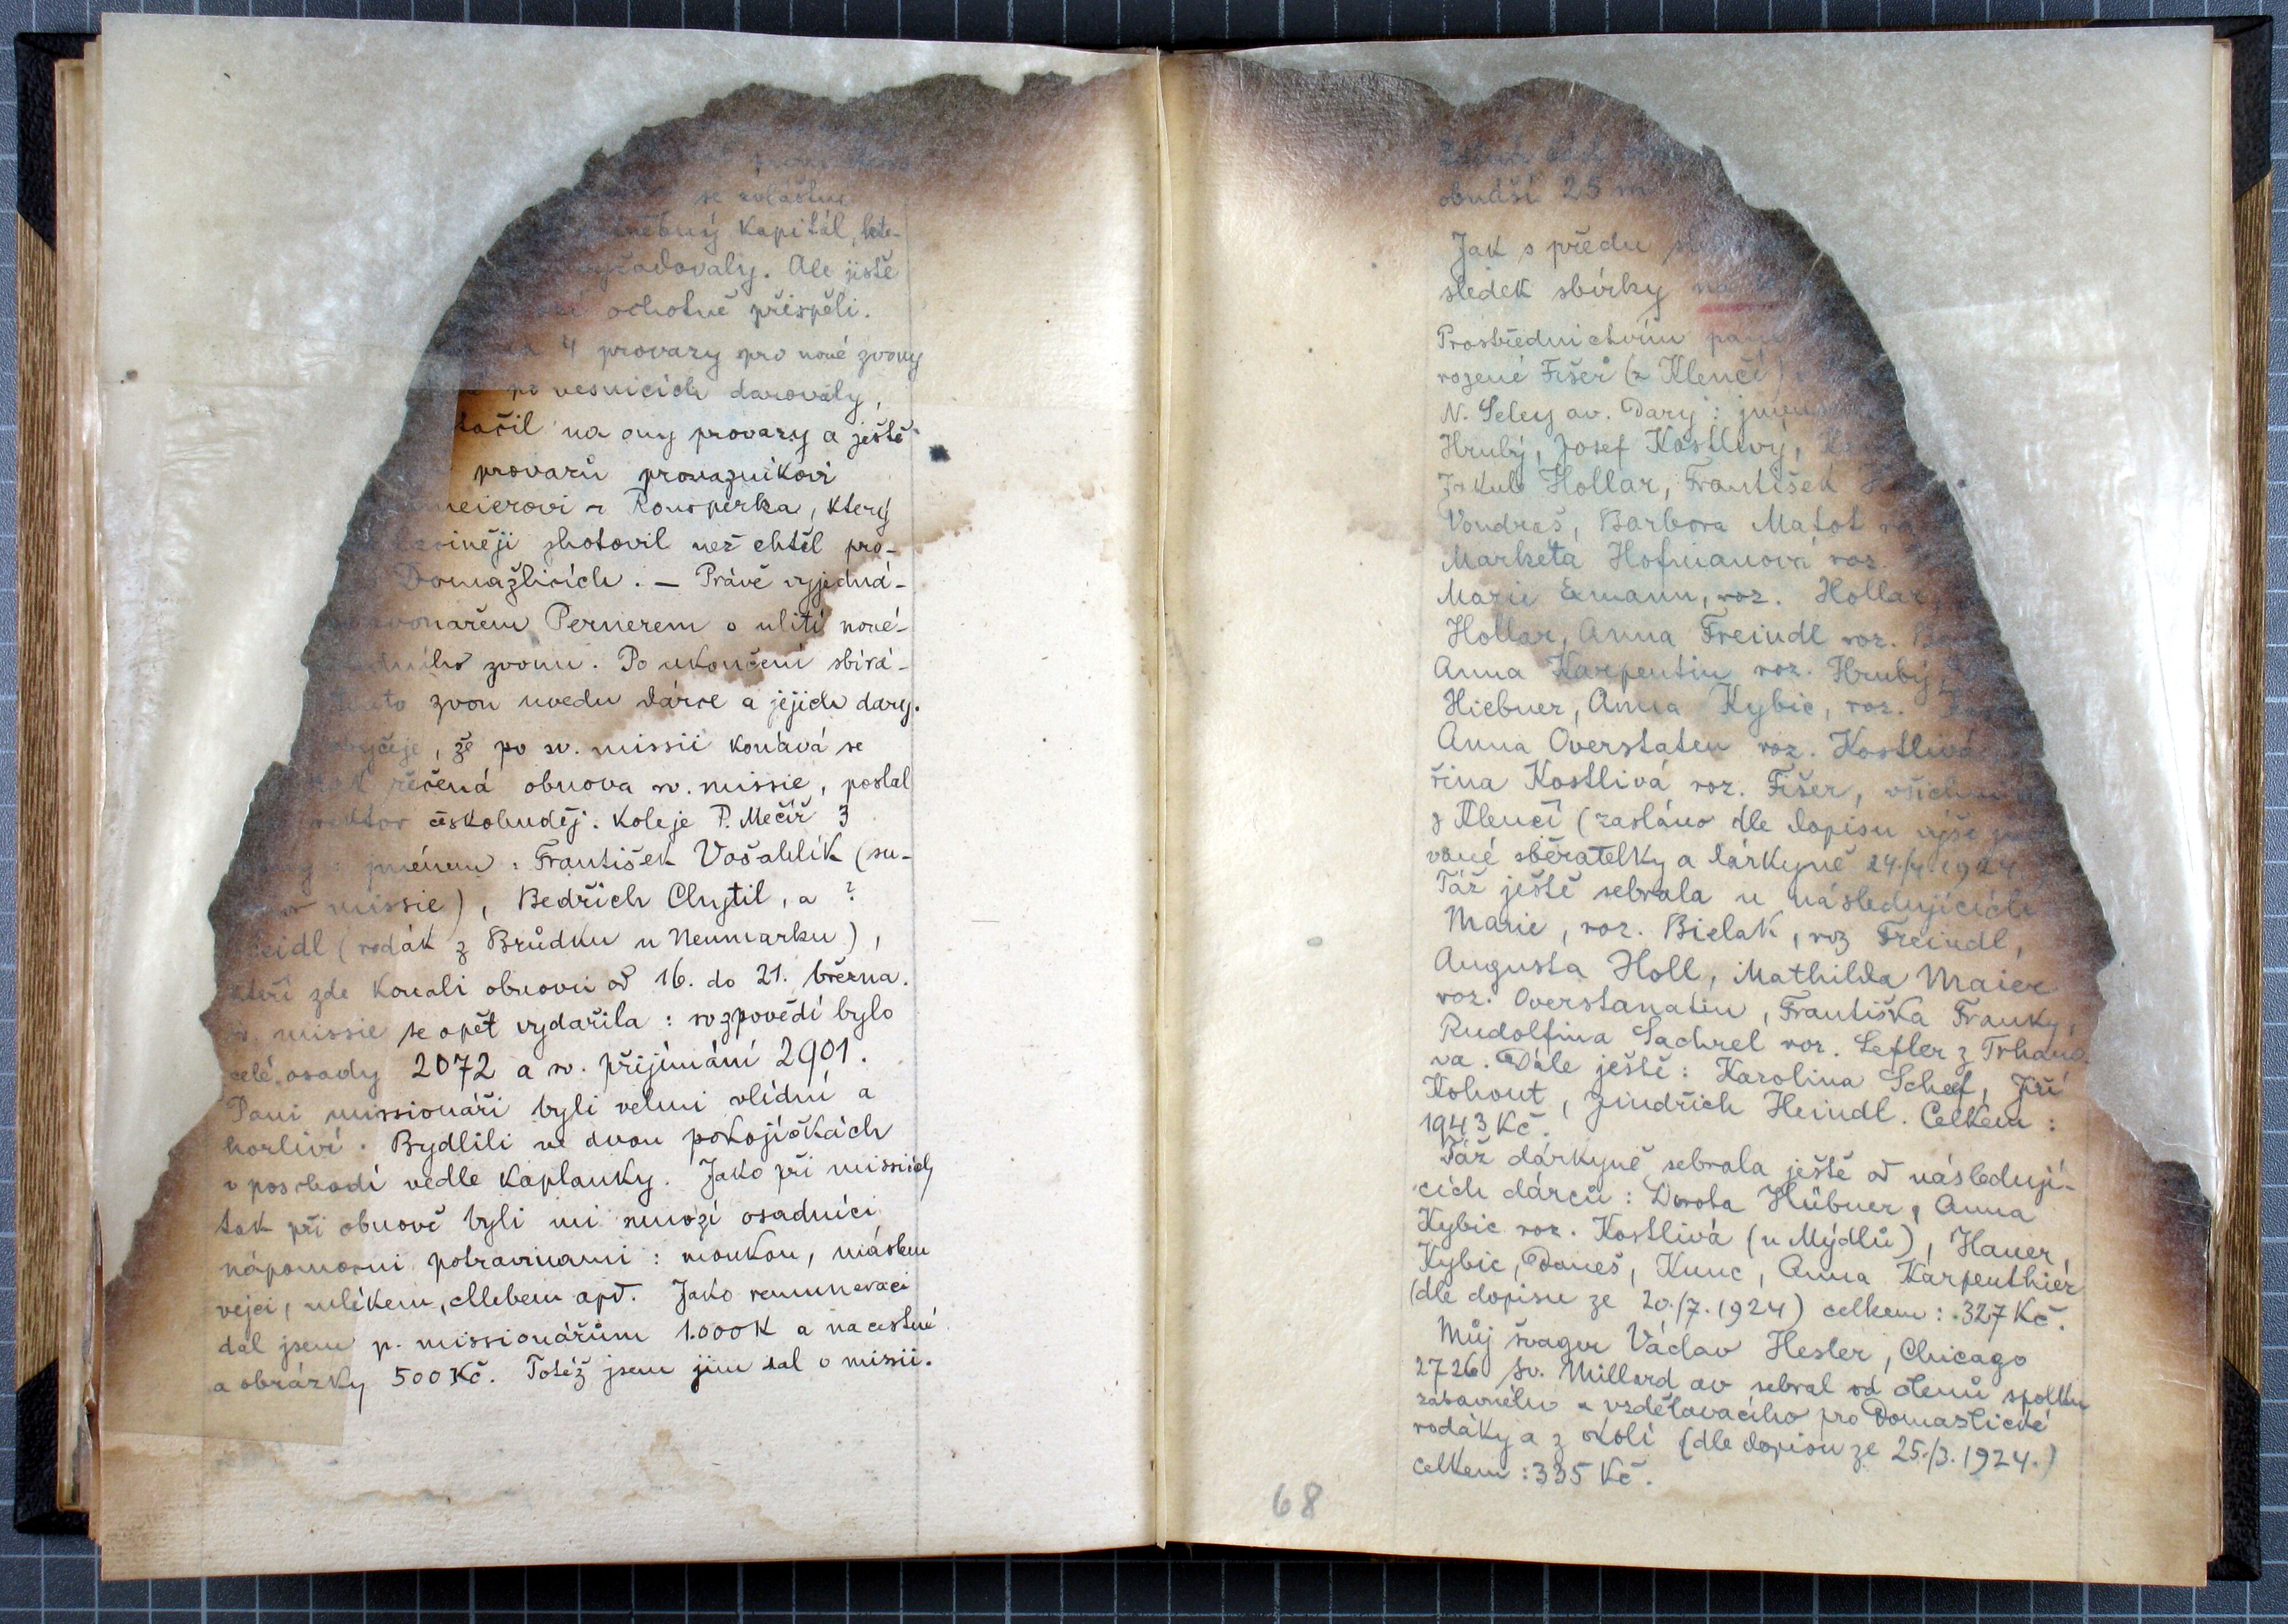 se zvláštní
kapitál, kte-
vyžadovaly. Ale jistě
ochotně přispěli.
4 provazy pro nové zvony
po vesnicích darovaly,
na ony provazy a ještě
provazů provazníkovi
z Ronsperka, který
zhotovil než chtěl pro-
Domažlicích. — Právě vyjedná-
zvonařem Pernerem o ulití nové-
zvonu. Po ukončení sbírá-
zvon uvedu dárce a jejich dary.
že po sv. missii konává se
řečená obnova sv. missie, poslal
rektor čéskobuděj. koleje P. Mečíř 3
jménem: František Vočahlík (su-
missie), Bedřich Chytil, a ?
(rodák z Brůdku u Neumarku),
kteří zde konali obnovu od 16. do 21. března.
sv. missie se opět vydařila: sv zpovědí bylo
celé osady 2072 a sv. přijímání 2901.
Páni missionáři byli velmi vlídní a
horliví. Bydlili ve dvou pokojíčkách
v poschodí vedle kaplanky. Jako při missiích
tak při obnově byli mi mnozí osadníci
nápomocni potravinami: moukou, máslem
vejci, mlékem, chlebem apd. Jako remuneraci
dal jsem p. missionářům 1.000 K a na cestné
a obrázky 500 Kč. Totéž jsem jim dal o misii.
obnáší 25 m
Jak s předu
sledek sbírky
Prostřednictvím
rozené Fišer (z Klenčí)
N. Seley av. Dary:
Hrubý, Josef Kostlivý,
Jakub Hollar, František
Vondraš, Barbora Matot
Markéta Hofmanová roz.
Marie Exmann, roz. Hollar,
Hollar, Anna Freindl roz.
Anna Karpentin roz. Hrubý,
Hiebner, Anna Kybic, roz.
Anna Overstaten roz. Kostlivá
řina Kostlivá roz. Fišer, všichni
z Klenčí (zasláno dle dopisu výše
vané sběratelky a dárkyně 24./4. 1924
Táž ještě sebrala u následujících
Marie, roz. Bielak, roz Freindl,
Augusta Holl, Mathilda Maier
roz. Overstanatin, Františka Franky,
Rudolfina Sachrel roz. Sefler z Trhano
va. Dále ještě: Karolina Schef, Jiří
Kohout, Jindřich Heindl. Celkem:
1943 Kč.
Táž dárkyně sebrala ještě od následují-
cích dárců: Dorota Hübner, Anna
Kybic roz. Kostlivá (u Mýdlů), Hauer,
Kybic, Daneš, Kunc, Anna Karpenthier
(dle dopisu ze 20./7. 1924) celkem: 327 Kč.
Můj švagr Václav Hesler, Chicago
2726 So. Millard av sebral od členů spolku
zábavného a vzdělávacího pro Domažlické
rodáky a z okolí (dle dopisu ze 25./3. 1924.)
celkem: 335 Kč.
68